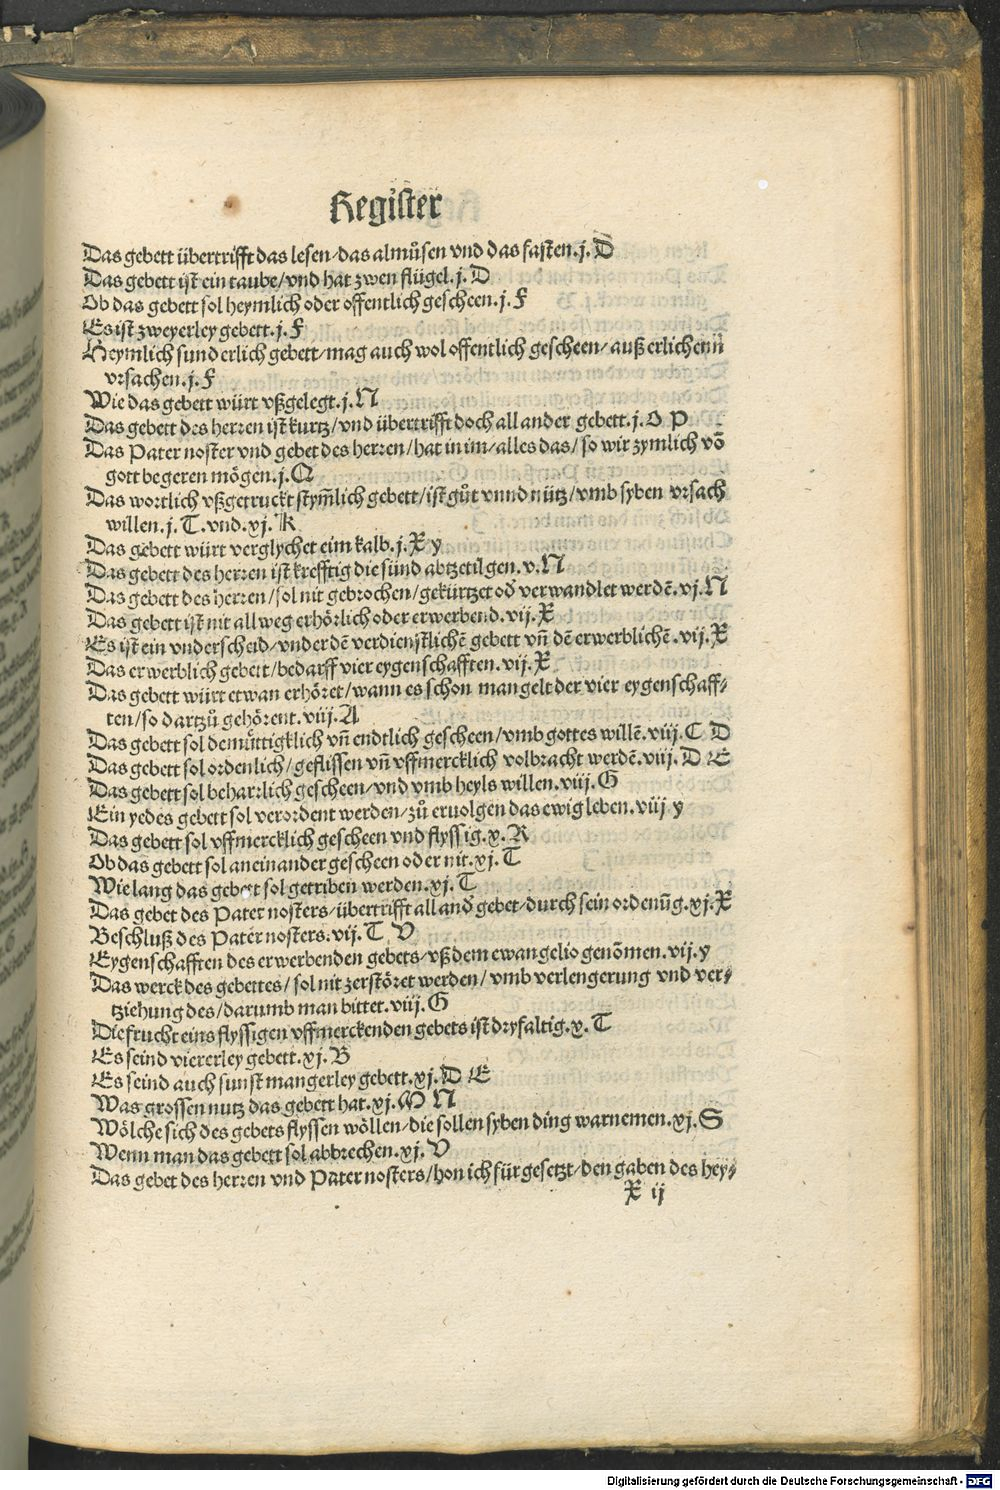 Register
Das gebett übertrifft das lesen/das almůsen vnd das fasten.j. D
Das gebett ist ein taube/vnd hat zwen flügel.j. D
Ob das gebett sol heymlich oder offentlich gescheen.j. F
Es ist zweyerley gebett.j. F
Heymlich sunderlich gebett/mag auch wol offentlich gescheen/auß erlichenn
vrsachen.j. F
Wie das gebett würt vßgelegt.j. N
Das gebett des herren ist kurtz/vnd übertrifft doch all ander gebett.j. O P
Das Pater noster vnd gebet des herren/hat in im/alles das/so wir zymlich vō
gott begeren mögen.j. Q
Das wortlich vßgetruckt stym̄lich gebett/ist gůt vnnd nütz/vmb syben vrsach
willen.j. T. vnd.xj. K
Das gebett würt verglychet eim kalb.j. X y
Das gebett des herren ist krefftig die sünd abtzetilgen.v. N
Das gebett des herren/sol nit gebrochen/gekürtzet od̕ verwandlet werdē.vj. N
Das gebett ist nit allweg erhörlich oder erwerbend.vij. X
Es ist ein vnderscheid/vnder dē verdienstlichē gebett vn̄ dē erwerblichē.vij. X
Das erwerblich gebett/bedarff vier eygenschafften.vij. X
Das gebett würt etwan erhöret/wann es schon mangelt der vier eygenschaff⸗
ten/so dartzů gehörent.viij. A
Das gebett sol demüttigklich vn̄ endtlich gescheen/vmb gottes willē.viij. C D
Das gebett sol ordenlich/geflissen vn̄ vffmercklich volbracht werdē.viij. D E
Das gebett sol beharrlich gescheen/vnd vmb heyls willen.viij. G
Ein yedes gebett sol verordent werden/zů eruolgen das ewig leben.viij y
Das gebett sol vffmercklich gescheen vnd flyssig.x. R
Ob das gebett sol aneinander gescheen oder nit.xj. T
Wie lang das gebett sol getriben werden.xj. T
Das gebet des Pater nosters/übertrifft all and̕ gebet/durch sein ordenūg.xj. X
Beschluß des Pater nosters.vij. T V
Eygenschafften des erwerbenden gebets/vß dem ewangelio genōmen.vij. y
Das werck des gebettes/sol nit zerstöret werden/vmb verlengerung vnd ver⸗
tziehung des/darumb man bittet.viij. G
Die frucht eins flyssigen vffmerckenden gebets ist dryfaltig.x. T
Es seind viererley gebett.xj. B
Es seind auch sunst mangerley gebett.xj. D E
Was grossen nutz das gebett hat.xj. M N
Wölche sich des gebets flyssen wöllen/die sollen syben ding warnemen.xj. S
Wenn man das gebett sol abbrechen.xj. V
Das gebet des herren vnd Pater nosters/hon ich für gesetzt/den gaben des hey⸗
X ij
Digitalisierung gefördert durch die Deutsche Forschungsgemeinschaft - DFG